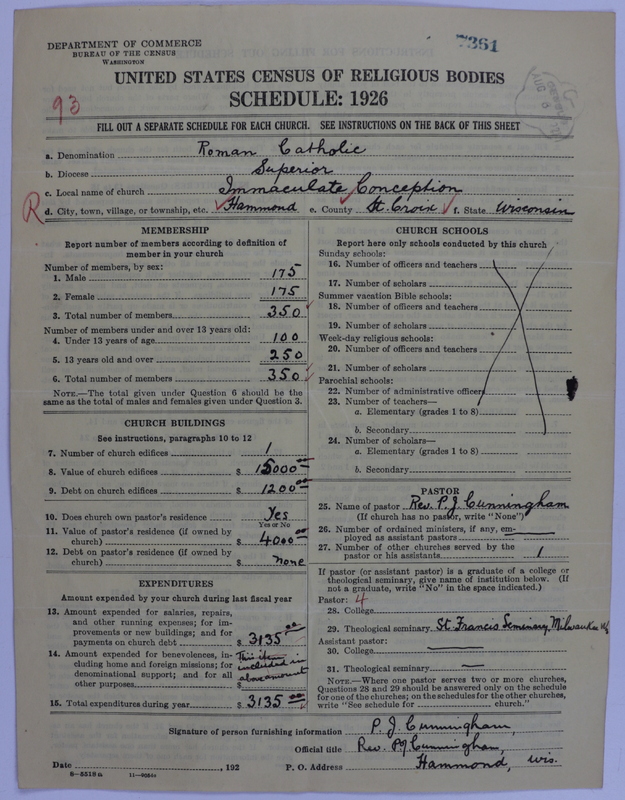 DEPARTMENT OF COMMERCE
BUREAU OF THE CENSUS
WASHINGTON
7361
UNITED STATES CENSUS OF RELIGIOUS BODIES
SCHEDULE: 1926
93
FILL OUT A SEPARATE SCHEDULE FOR EACH CHURCH. SEE INSTRUCTIONS ON THE BACK OF THIS SHEET
a. Denomination Roman Catholic
b. Diocese Superior
c. Local name of church Immaculate Conception
R d. City, town, village, or township, etc. Hammond e. County St. Croix f. State Wisconsin
MEMBERSHIP
Report number of members according to definition of
member in your church
Number of members, by sex:
1. Male 175
2. Female 175
3. Total number of members 350
Number of members under and over 13 years old:
4. Under 13 years of age 100
5. 13 years old and over 250
6. Total number of members 350
NOTE.—The total given under Question 6 should be the
same as the total of males and females given under Question 3.
CHURCH BUILDINGS
See instructions, paragraphs 10 to 12
7. Number of church edifices 1
8. Value of church edifices $ 15000 00
9. Debt on church edifices $ 1200 00
10. Does church own pastor's residence Yes
Yes or No
11. Value of pastor's residence (if owned by
church) $ 4000 00
12. Debt on pastor's residence (if owned by
church) $ none
EXPENDITURES
Amount expended by your church during last fiscal year
13. Amount expended for salaries, repairs,
and other running expenses; for im-
provements or new buildings; and for
payments on church debt $ 3135 00
14. Amount expended for benevolences, in-
cluding home and foreign missions; for
denominational support; and for all
other purposes $ This item included in above amount
15. Total expenditures during year $ 3135 00
CHURCH SCHOOLS
Report here only schools conducted by this church
Sunday schools:
16. Number of officers and teachers
17. Number of scholars
Summer vacation Bible schools:
18. Number of officers and teachers
19. Number of scholars
Week-day religious schools:
20. Number of officers and teachers
21. Number of scholars
Parochial schools:
22. Number of administrative officers
23. Number of teachers—
a. Elementary (grades 1 to 8)
b. Secondary
24. Number of scholars—
a. Elementary (grades 1 to 8)
b. Secondary
PASTOR
25. Name of pastor Rev. P. J. Cunningham
(If church has no pastor, write "None")
26. Number of ordained ministers, if any, em-
ployed as assistant pastors
27. Number of other churches served by the
pastor or his assistants 1
If pastor (or assistant pastor) is a graduate of a college or
theological seminary, give name of institution below. (If
not a graduate, write "No" in the space indicated.)
Pastor: 4
28. College
29. Theological seminary St. Francis Seminary, Milwaukee Wis
Assistant pastor:
30. College
31. Theological seminary
NOTE.—Where one pastor serves two or more churches,
Questions 28 and 29 should be answered only on the schedule
for one of the churches; on the schedules for the other churches,
write "See schedule for church."
Signature of person furnishing information P. J. Cunningham,
Official title Rev. P. J. Cunningham,
Date , 192 P. O. Address Hammond, Wis.
8—5518a 11—9054a